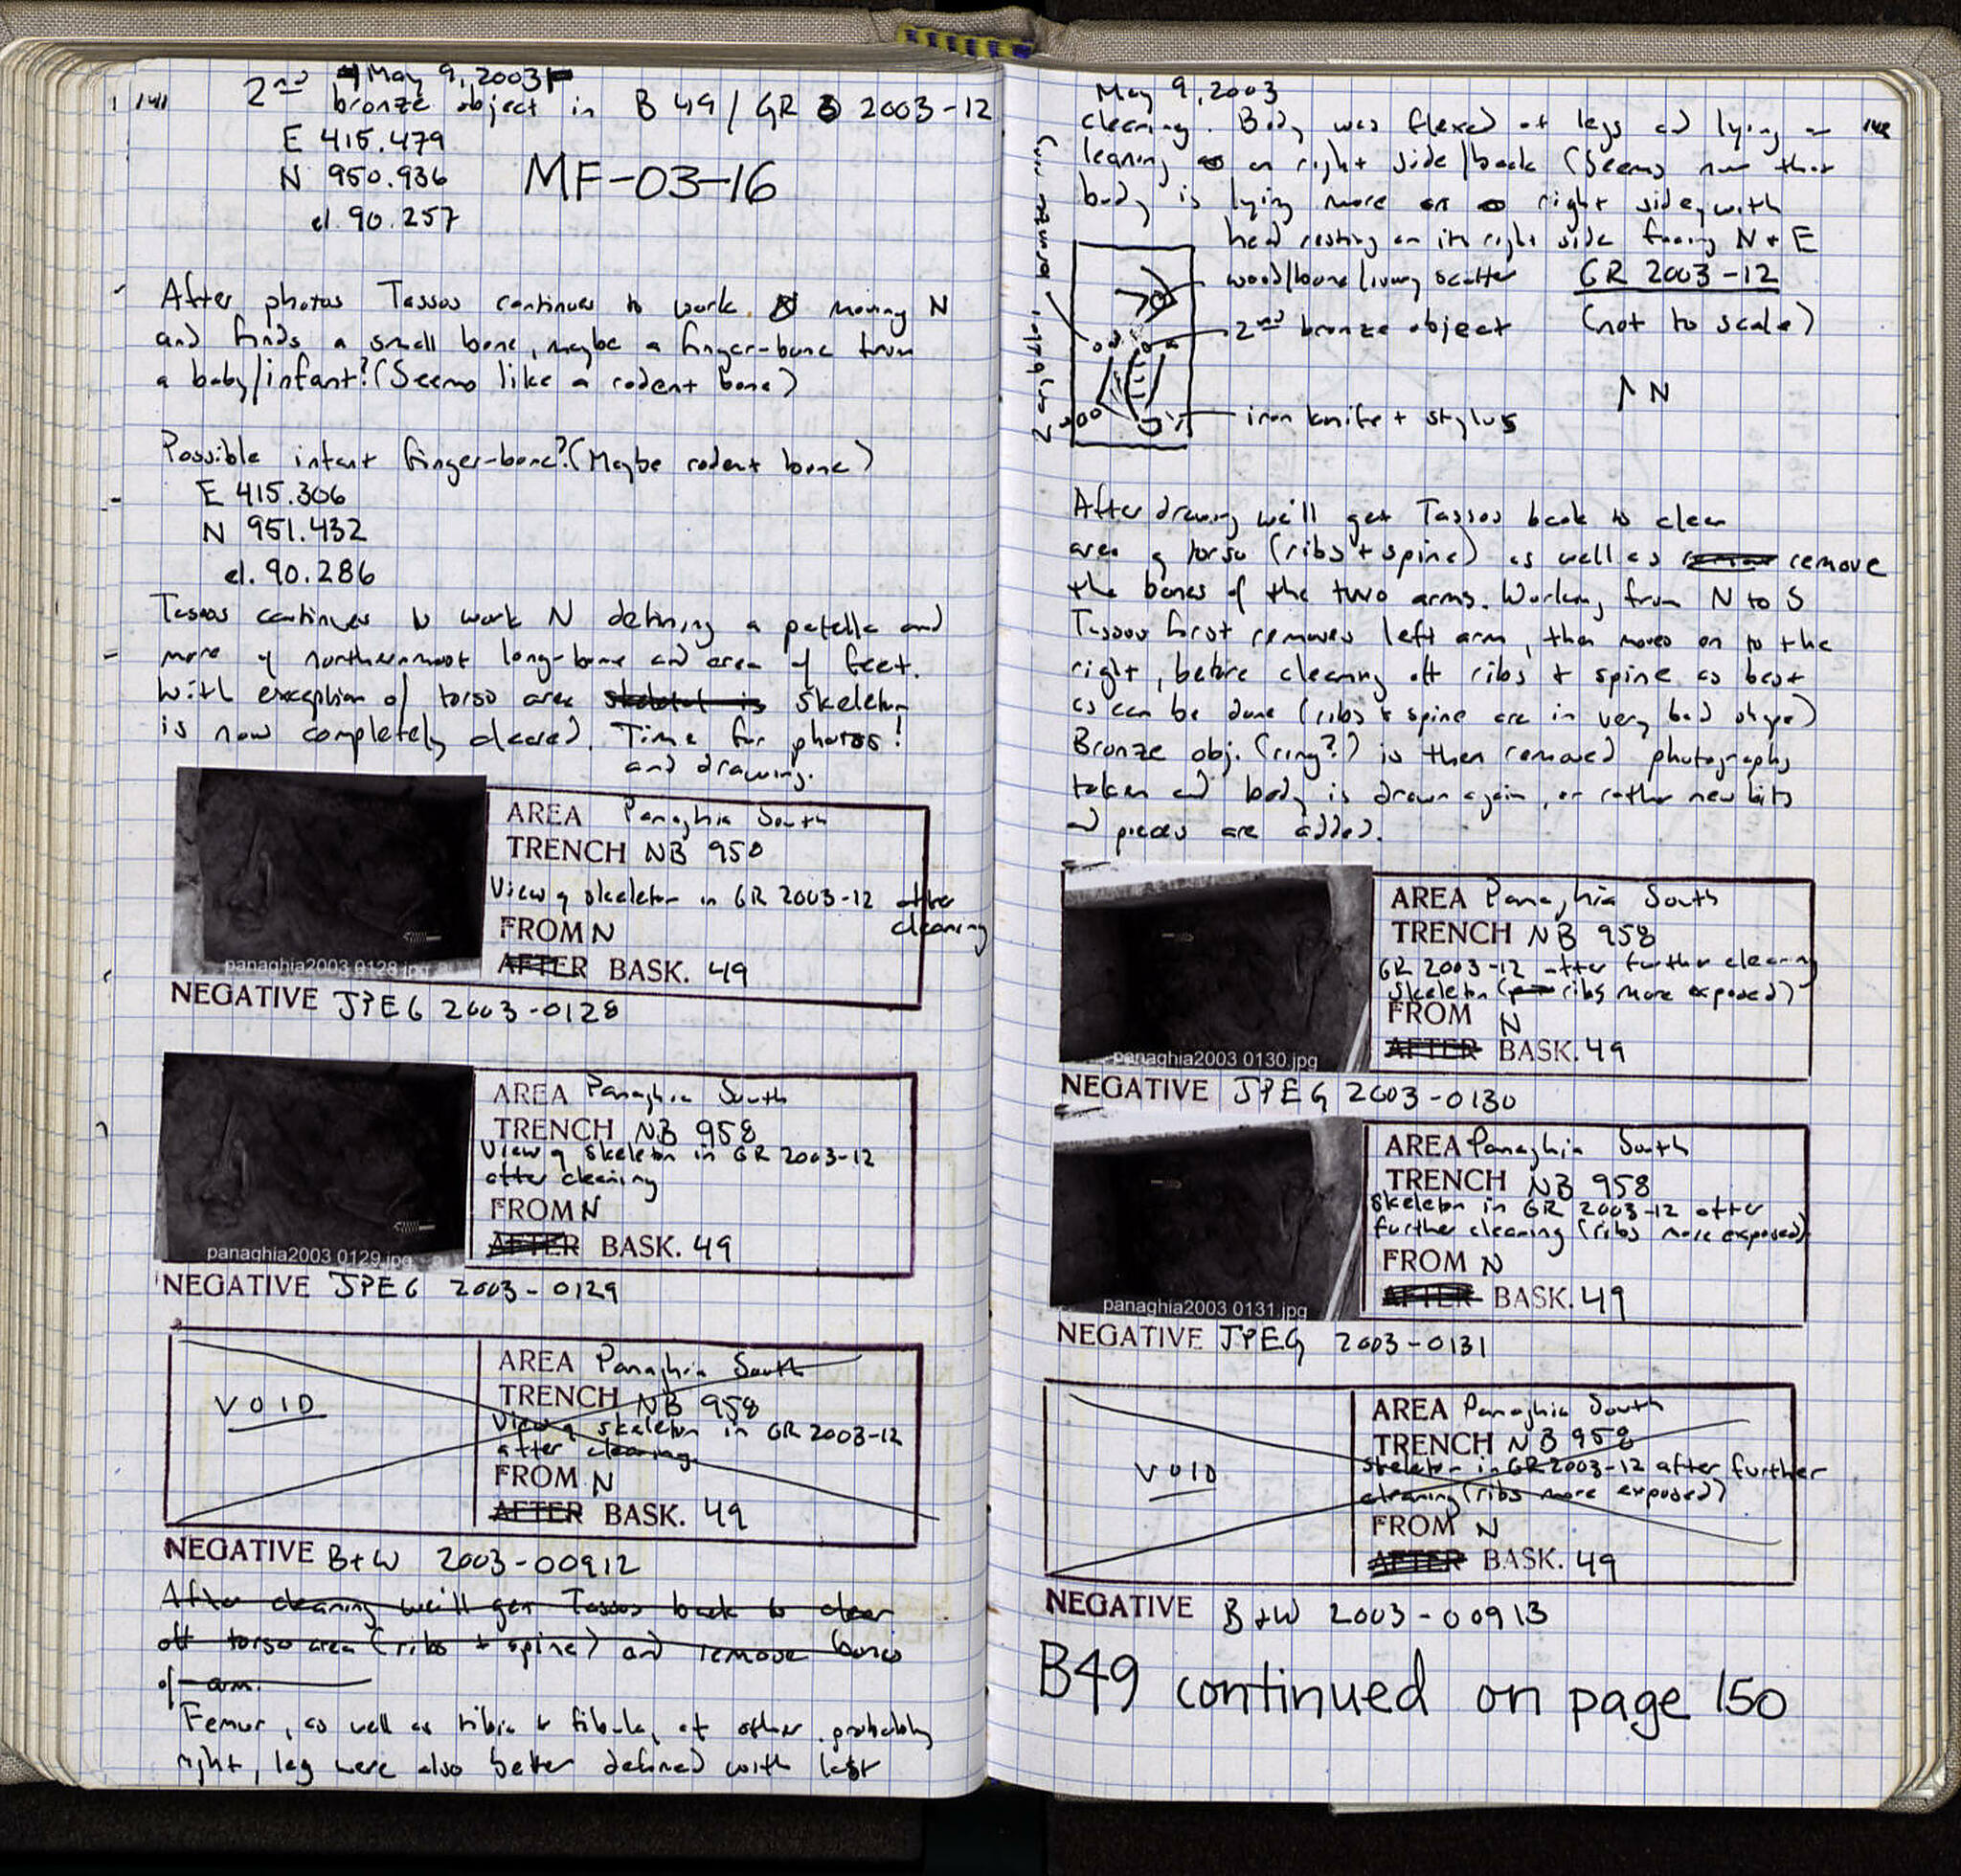 141
May 9, 2003
2nd bronze object in B 49 / GR 2003-12
E 415.479
N 950.936
el. 90.257
MF-03-16
After photos Tassos continues to work. moving N
and finds a small bone, maybe a finger-bone from
a baby/infant? (Seems like a rodent bone)
Possible infant finger-bone? (Maybe rodent bone)
E 415.306
N 951.432
el. 90.286
Tassos continues to work N defining a patella and
more of northernmost long-bone and area of feet.
With exception of torso area skeletal is skeleton
is now completely cleared. Time for photos!
and drawing.
panaghia2003 0128.jpg
AREA Panaghia South
TRENCH NB 958
View of skeleton in GR 2003-12 after
cleaning
FROM N
AFTER BASK. 49
NEGATIVE JPEG 2003-0128
panaghia2003 0129.jpg
AREA Panaghia South
TRENCH NB 958
View of skeleton in GR 2003-12
after cleaning
FROM N
AFTER BASK. 49
NEGATIVE JPEG 2003-0129
VOID
AREA Panaghia South
TRENCH NB 958
View of skeleton in GR 2003-12
after cleaning
FROM N
AFTER BASK. 49
NEGATIVE B+W 2003-00912
After cleaning we'll get Tassos back to clear
off torso area (ribs + spine) and remove bones
of arm.
Femur, as well as tibia & fibula, of other probably
right, leg were also better defined with last
May 9, 2003
142
cleaning. Body was flexed at legs and lying or
leaning on right side/back (Seems now that
body is lying more on right side, with
head resting on its right side facing N + E
wood/bone/ivory scatter
GR 2003-12
2nd bronze object
(not to scale)
N
iron knife + stylus
After drawing we'll get Tassos back to clear
area of torso (ribs + spine) as well as remove
the bones of the two arms. Working from N to S
Tassos first removes left arm, then moves on to the
right, before cleaning off ribs & spine as best
as can be done (ribs & spine are in very bad shape)
Bronze obj. (ring?) is then removed photographs
taken and body is drawn again, or rather new bits
and pieces are added.
panaghia2003 0130.jpg
AREA Panaghia South
TRENCH NB 958
GR 2003-12 after further cleaning
skeleton (ribs more exposed)
FROM N
AFTER BASK. 49
NEGATIVE JPEG 2003-0130
panaghia2003 0131.jpg
AREA Panaghia South
TRENCH NB 958
skeleton in GR 2003-12 after
further cleaning (ribs more exposed)
FROM N
AFTER BASK. 49
NEGATIVE JPEG 2003-0131
VOID
AREA Panaghia South
TRENCH NB 958
skeleton in GR 2003-12 after further
cleaning (ribs more exposed)
FROM N
AFTER BASK. 49
NEGATIVE B+W 2003-00913
B49 continued on page 150